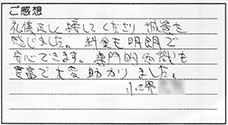 ご感想
礼儀正しく接してくださり 誠意を
感じました。料金も明朗で
安心できます。専門的知識も
豊富で大変助かりました。